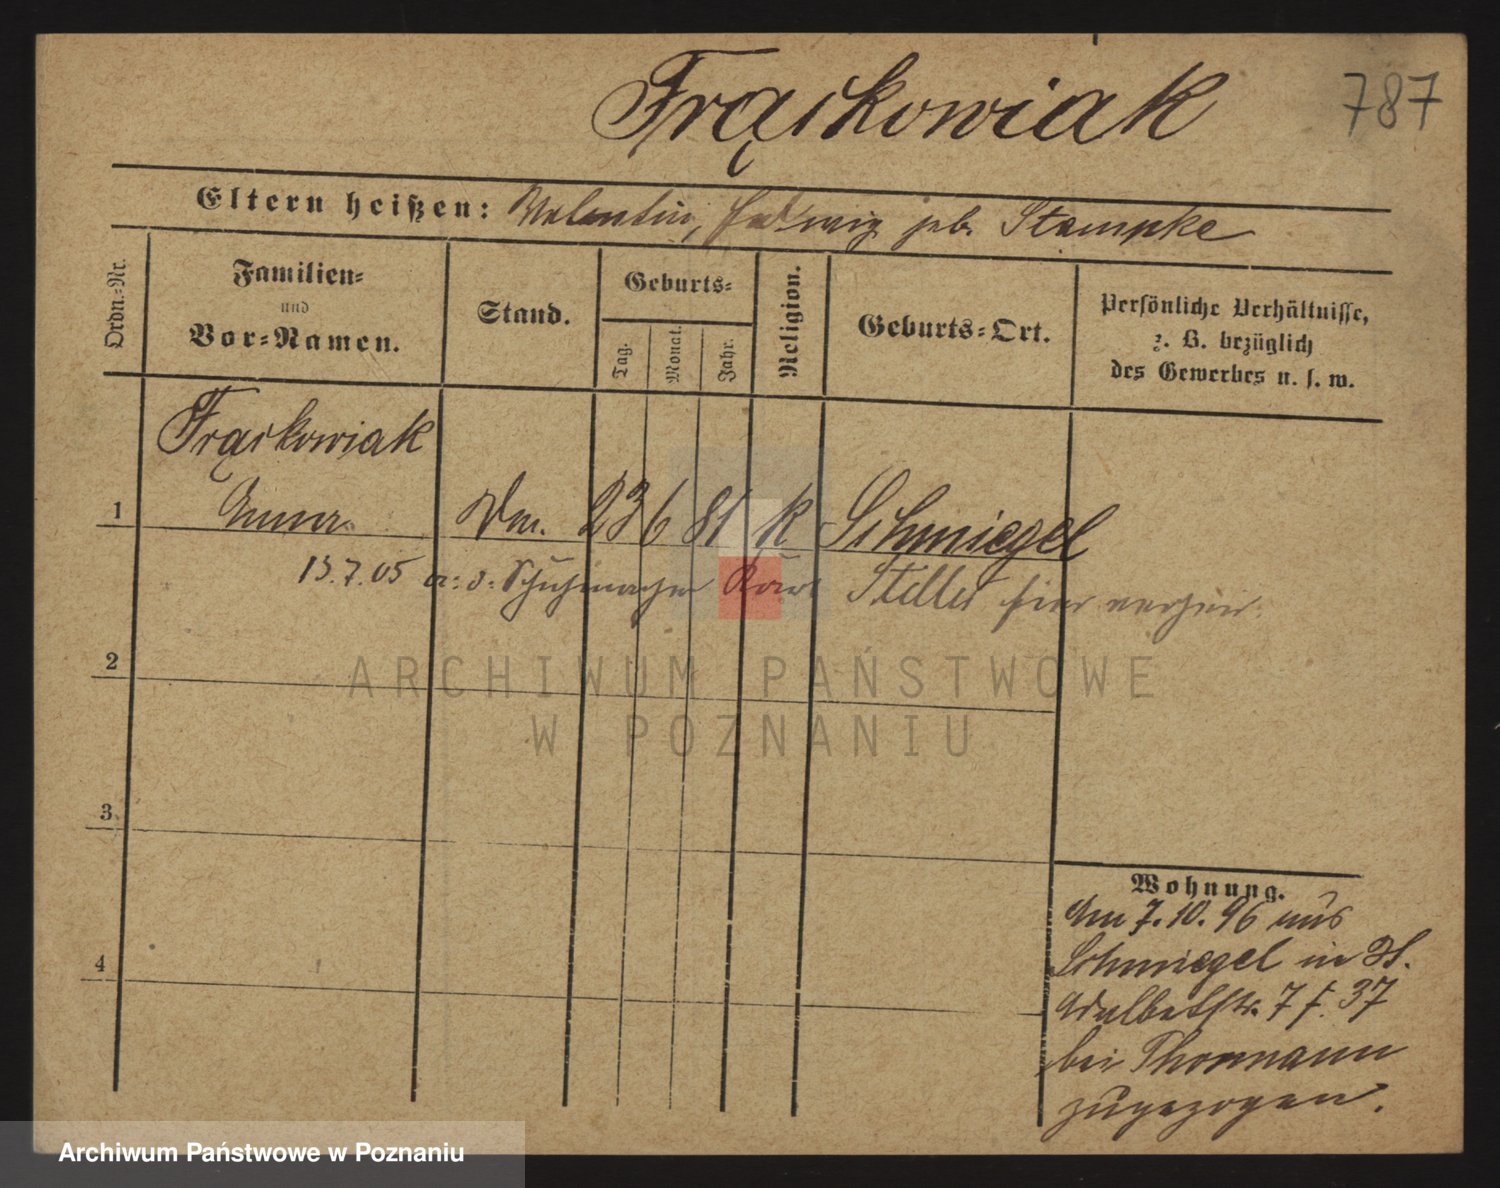 Frąckowiak
787
Eltern heißen: Valentin, Hedwig geb. Stempke
Ordn.-Nr.
Familien-
und
Vor-Namen.
Stand.
Geburts-
Tag.
Monat.
Jahr.
Religion.
Geburts-Ort.
Persönliche Verhältnisse,
z. B. bezüglich
des Gewerbes u. s. w.
Frąckowiak
1 Anna 23 6 81 k Schmiegel
13.7.05 a. d. Schuhmacher Karl Stelter hier verheir.
2
3
4
Wohnung.
Am 7.10.96 aus
Schmiegel in
Adalbertstr. 7 37
bei Thormann
zugezogen.
ARCHIWUM PAŃSTWOWE
W POZNANIU
Archiwum Państwowe w Poznaniu